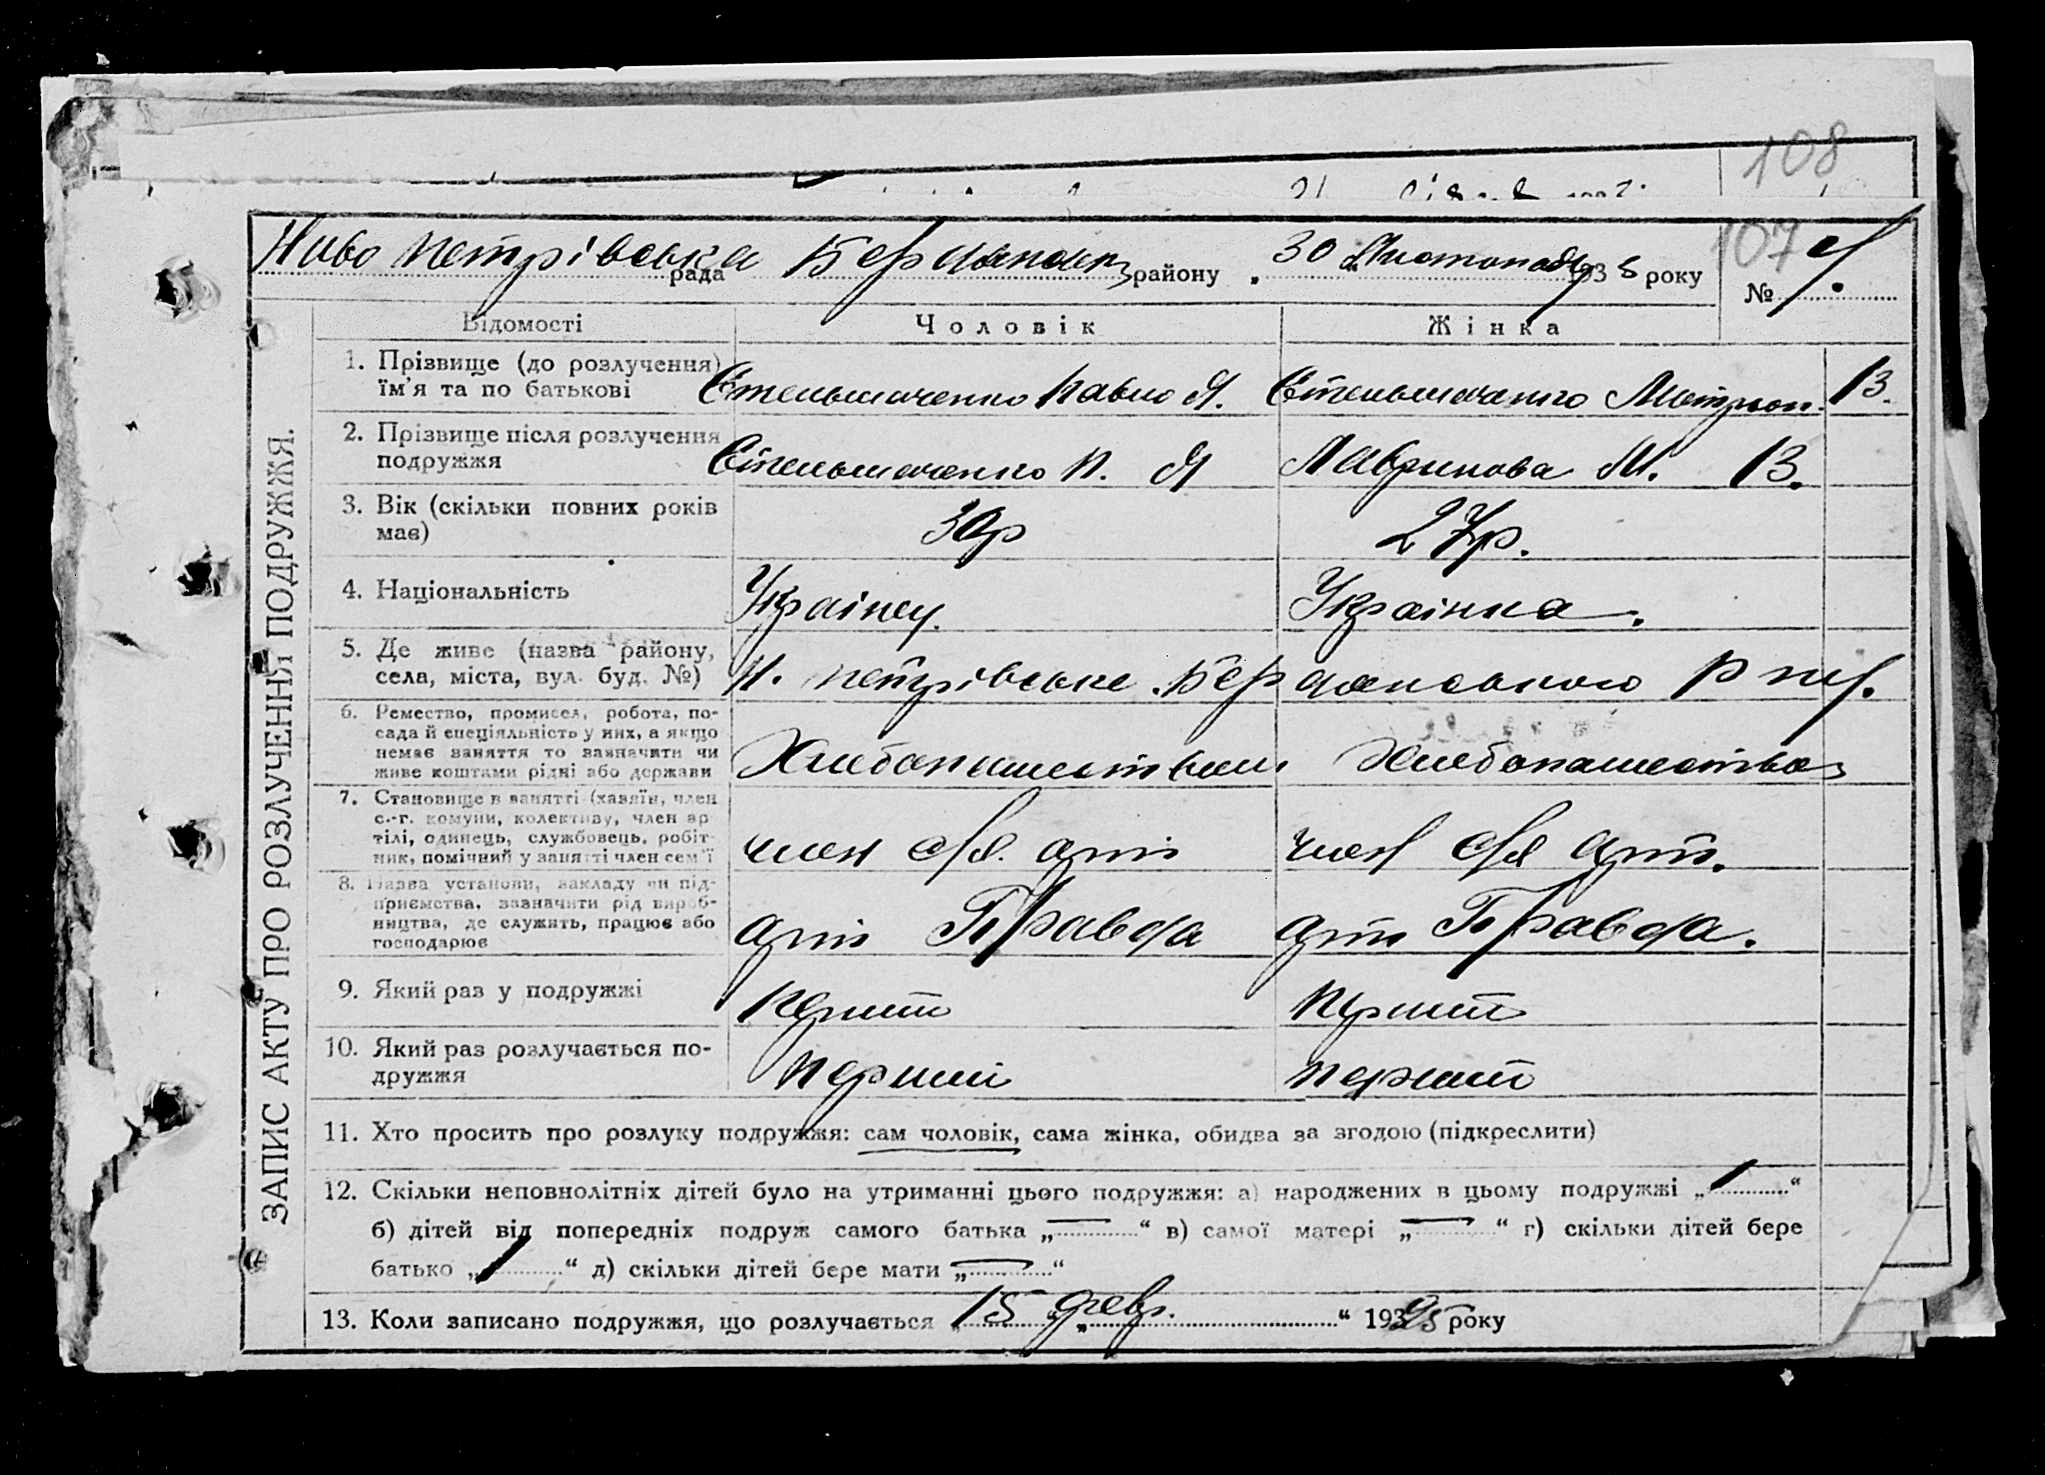 108
107
Ново Петрівська рада Бердянськ району „30 Листопада 1935 року
№
ЗАПИС АКТУ ПРО РОЗЛУЧЕННЯ ПОДРУЖЖЯ.
Відомості Чоловік Жінка
1. Прізвище (до розлучення) їм'я та по батькові Стельмаченко Павло Я. Стельмаченко Мотрон. В.
2. Прізвище після розлучення подружжя Стельмаченко П. Я Лавринова М. В.
3. Вік (скільки повних років має) 30р 27р.
4. Національність Українец. Українка.
5. Де живе (назва району, села, міста, вул. буд. №) Н. Петрівське Бердянського
6. Ремество, промисел, робота, посада й спеціяльність у них, а якщо немає заняття то зазначити чи живе коштами рідні або держави Хлебопашеством Хлебопашество
7. Становище в занятті (хазяїн, член с.-г. комуни, колективу, член артілі, одинець, службовець, робітник, помічний у занятті член сем'ї член с/г. арт член с/г арт.
8. Назва установи, закладу чи підприємства, зазначити рід виробництва, де служить, працює або господарює арт Правда арт Правда.
9. Який раз у подружжі
10. Який раз розлучається подружжя перший
11. Хто просить про розлуку подружжя: сам чоловік, сама жінка, обидва за згодою (підкреслити)
12. Скільки неповнолітніх дітей було на утриманні цього подружжя: а) народжених в цьому подружжі „1“
б) дітей від попередніх подруж самого батька „—“ в) самої матері „—“ г) скільки дітей бере
батько „1“ д) скільки дітей бере мати „—“
13. Коли записано подружжя, що розлучається „15 „февр.“ 193 року